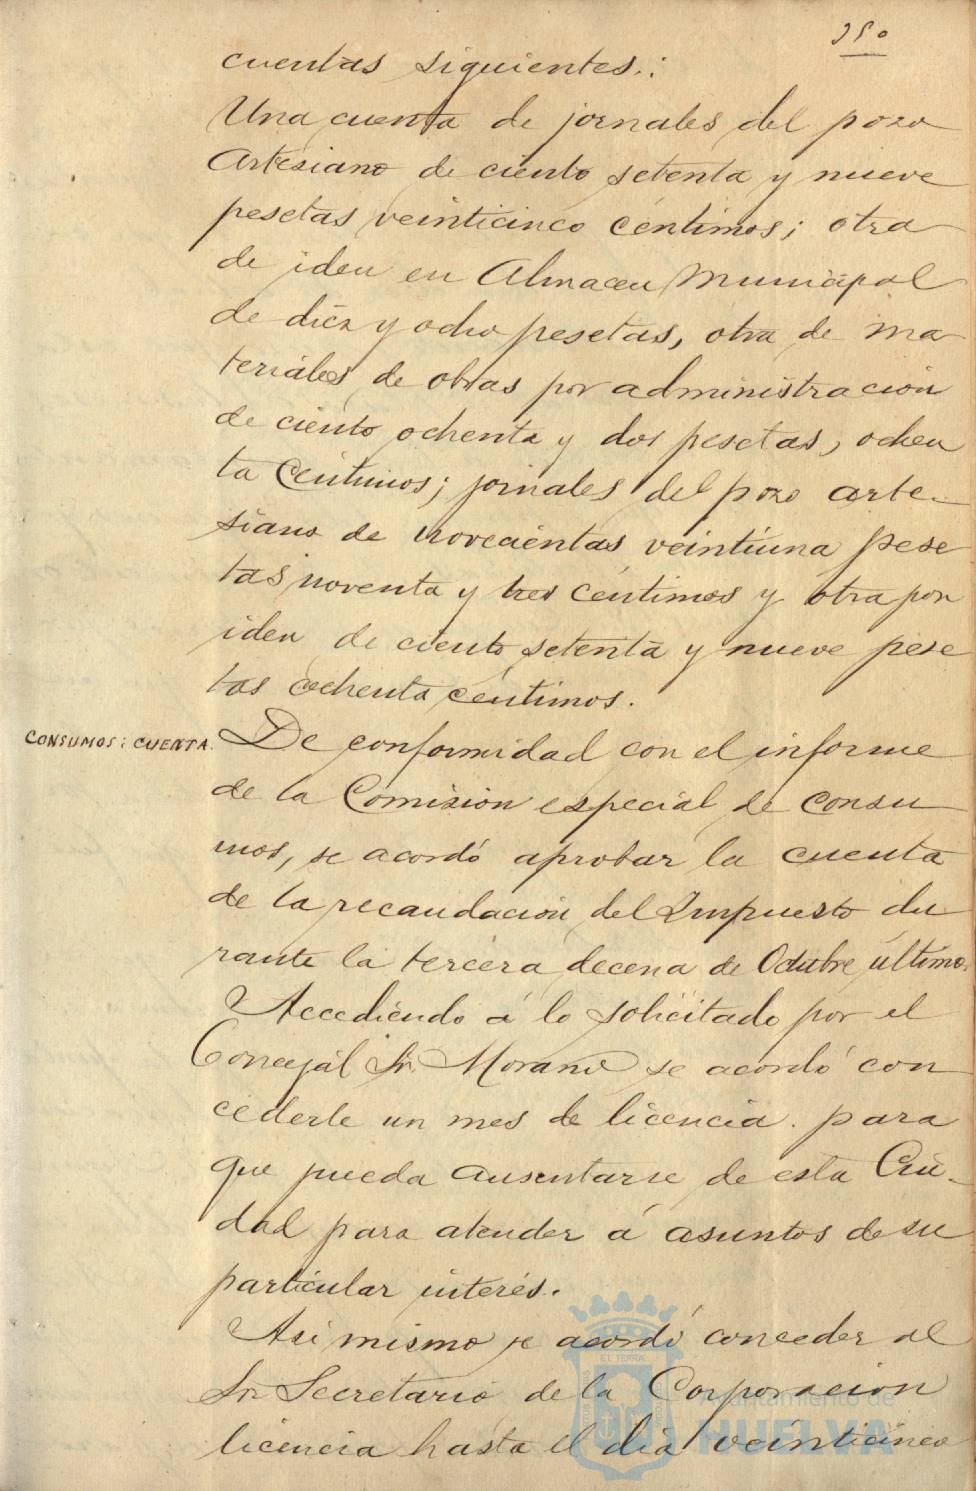 250
cuentas siguientes.:
Una cuenta de jornales del pozo
Artesiano de ciento setenta y nueve
pesetas veinticinco céntimos; otra
de iden en Almacen Municipal
de diez y ocho pesetas, otra de ma
teriales de obras por administración
de ciento ochenta y dos pesetas, ochen
ta Céntimos; jornales del pozo arte-
siano de novecientas veintiuna pese
tas noventa y tres céntimos y otra por
iden de ciento setenta y nueve pese
tas ochenta céntimos.
CONSUMOS: CUENTA. De conformidad con el informe
de la Comision especial de consu
mos, se acordó aprobar la cuenta
de la recaudación del Impuesto du
rante la tercera decena de Octubre último.
Accediendo á lo solicitado por el
Concejal Sr. Morano se acordó con
cederle un mes de licencia. para
que pueda ausentarse de esta Ciu-
dad para atender á asuntos de su
particular interés.
Asi mismo se acordó conceder al
Sr Secretario de la Corporacion
licencia hasta el dia veinticinco
Ayuntamiento de
HUELVA